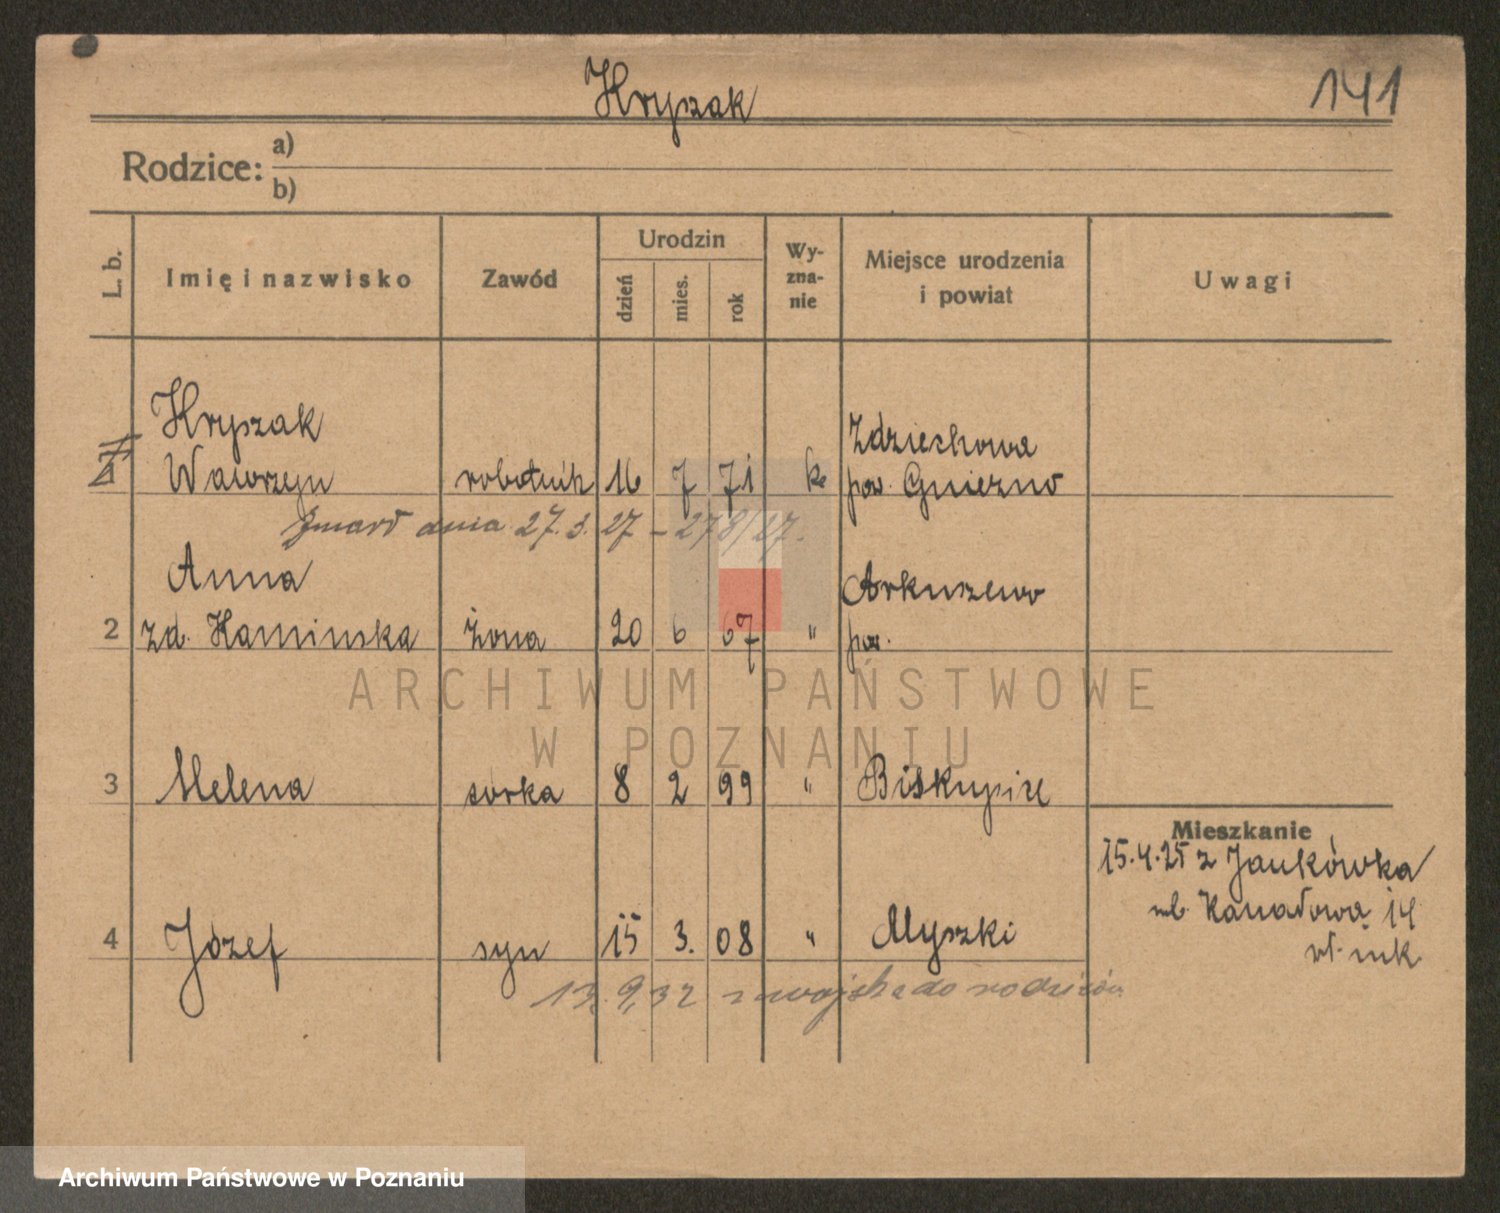 Kryszak
141
Rodzice: a)
b)
L. b.
Imię i nazwisko
Zawód
Urodzin
dzień
mies.
rok
Wy-
zna-
nie
Miejsce urodzenia
i powiat
Uwagi
Kryszak
Wawrzyn robotnik 16 7 71 k
Zdziechowa
pow. Gniezno
Zmarł dnia 27.3.27 – 278/27.
Anna
2 zd. Kaminska żona 20 6 67 "
Arkuszewo
pow.
ARCHIWUM PAŃSTWOWE
W POZNANIU
3 Helena corka 8 2 99 " Biskupice
Mieszkanie
15.4.25 z Jankówka
Kanałowa 14
4 Józef syn 15 3. 08 " Myszki
13.9.32 z wojska do rodziców
Archiwum Państwowe w Poznaniu